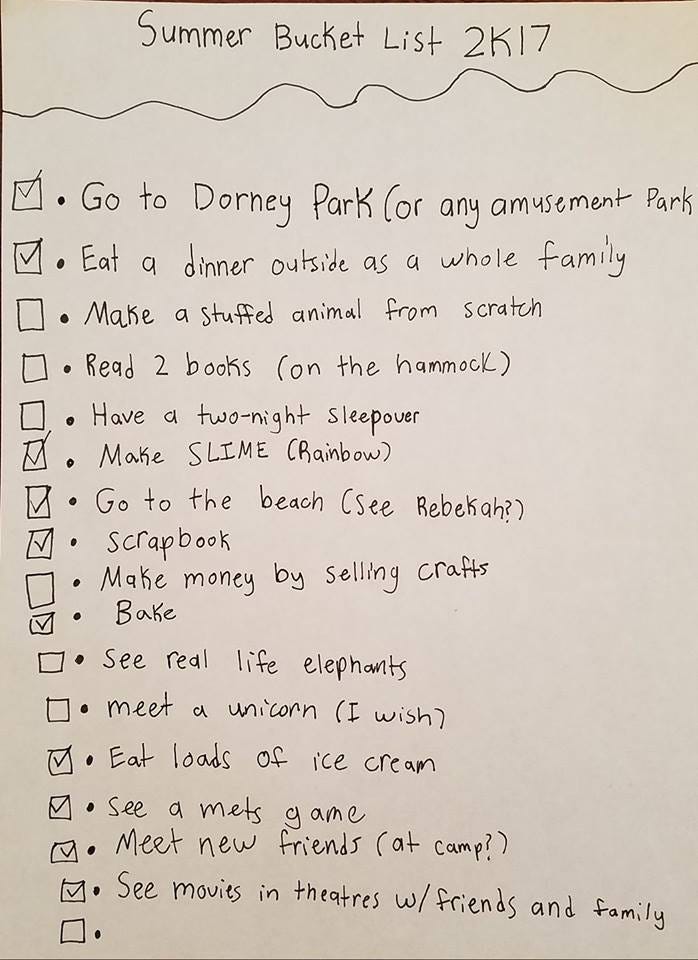 Summer Bucket List 2K17
• Go to Dorney Park (or any amusement Park
• Eat a dinner outside as a whole family
• Make a stuffed animal from scratch
• Read 2 books (on the hammock)
• Have a two-night sleepover
• Make SLIME (Rainbow)
• Go to the beach (See Rebekah?)
• Scrapbook
• Make money by selling crafts
• Bake
• See real life elephants
• meet a unicorn (I wish)
• Eat loads of ice cream
• See a mets game
• Meet new friends (at camp?)
• See movies in theatres w/friends and family
•